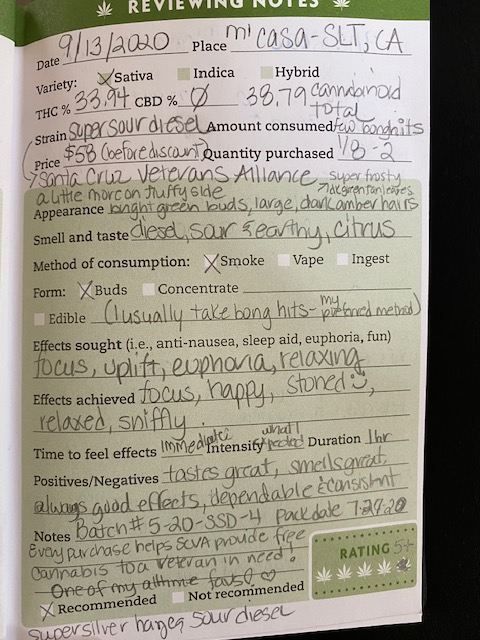 REVIEWING NOTES
Date 9/13/2020 Place mi casa - SLT, CA
Variety: Sativa Indica Hybrid
THC % 33.94 CBD % Ø 38.79 cannabinoid total
Strain super sour diesel Amount consumed few bong hits
Price $58 (before discount) Quantity purchased 1/8 - 2
Santa Cruz Veterans Alliance super frosty
a little more on fluffy side dk green fan leaves
Appearance bright green buds, large, dark amber hairs
Smell and taste diesel, sour & earthy, citrus
Method of consumption: Smoke Vape Ingest
Form: Buds Concentrate
Edible (I usually take bong hits - my preferred method)
Effects sought (i.e., anti-nausea, sleep aid, euphoria, fun)
focus, uplift, euphoria, relaxing
Effects achieved focus, happy, stoned
relaxed, sniffly
Time to feel effects immediate Intensity what I expected Duration 1hr
Positives/Negatives tastes great, smells great,
always good effects, dependable & consistent
Notes Batch # 5-20-SSD-4 pack date 7-27-20
Every purchase helps SCVA provide free
cannabis to a veteran in need!
One of my alltime favs!
RATING 5+
Recommended Not recommended
super silver haze x sour diesel